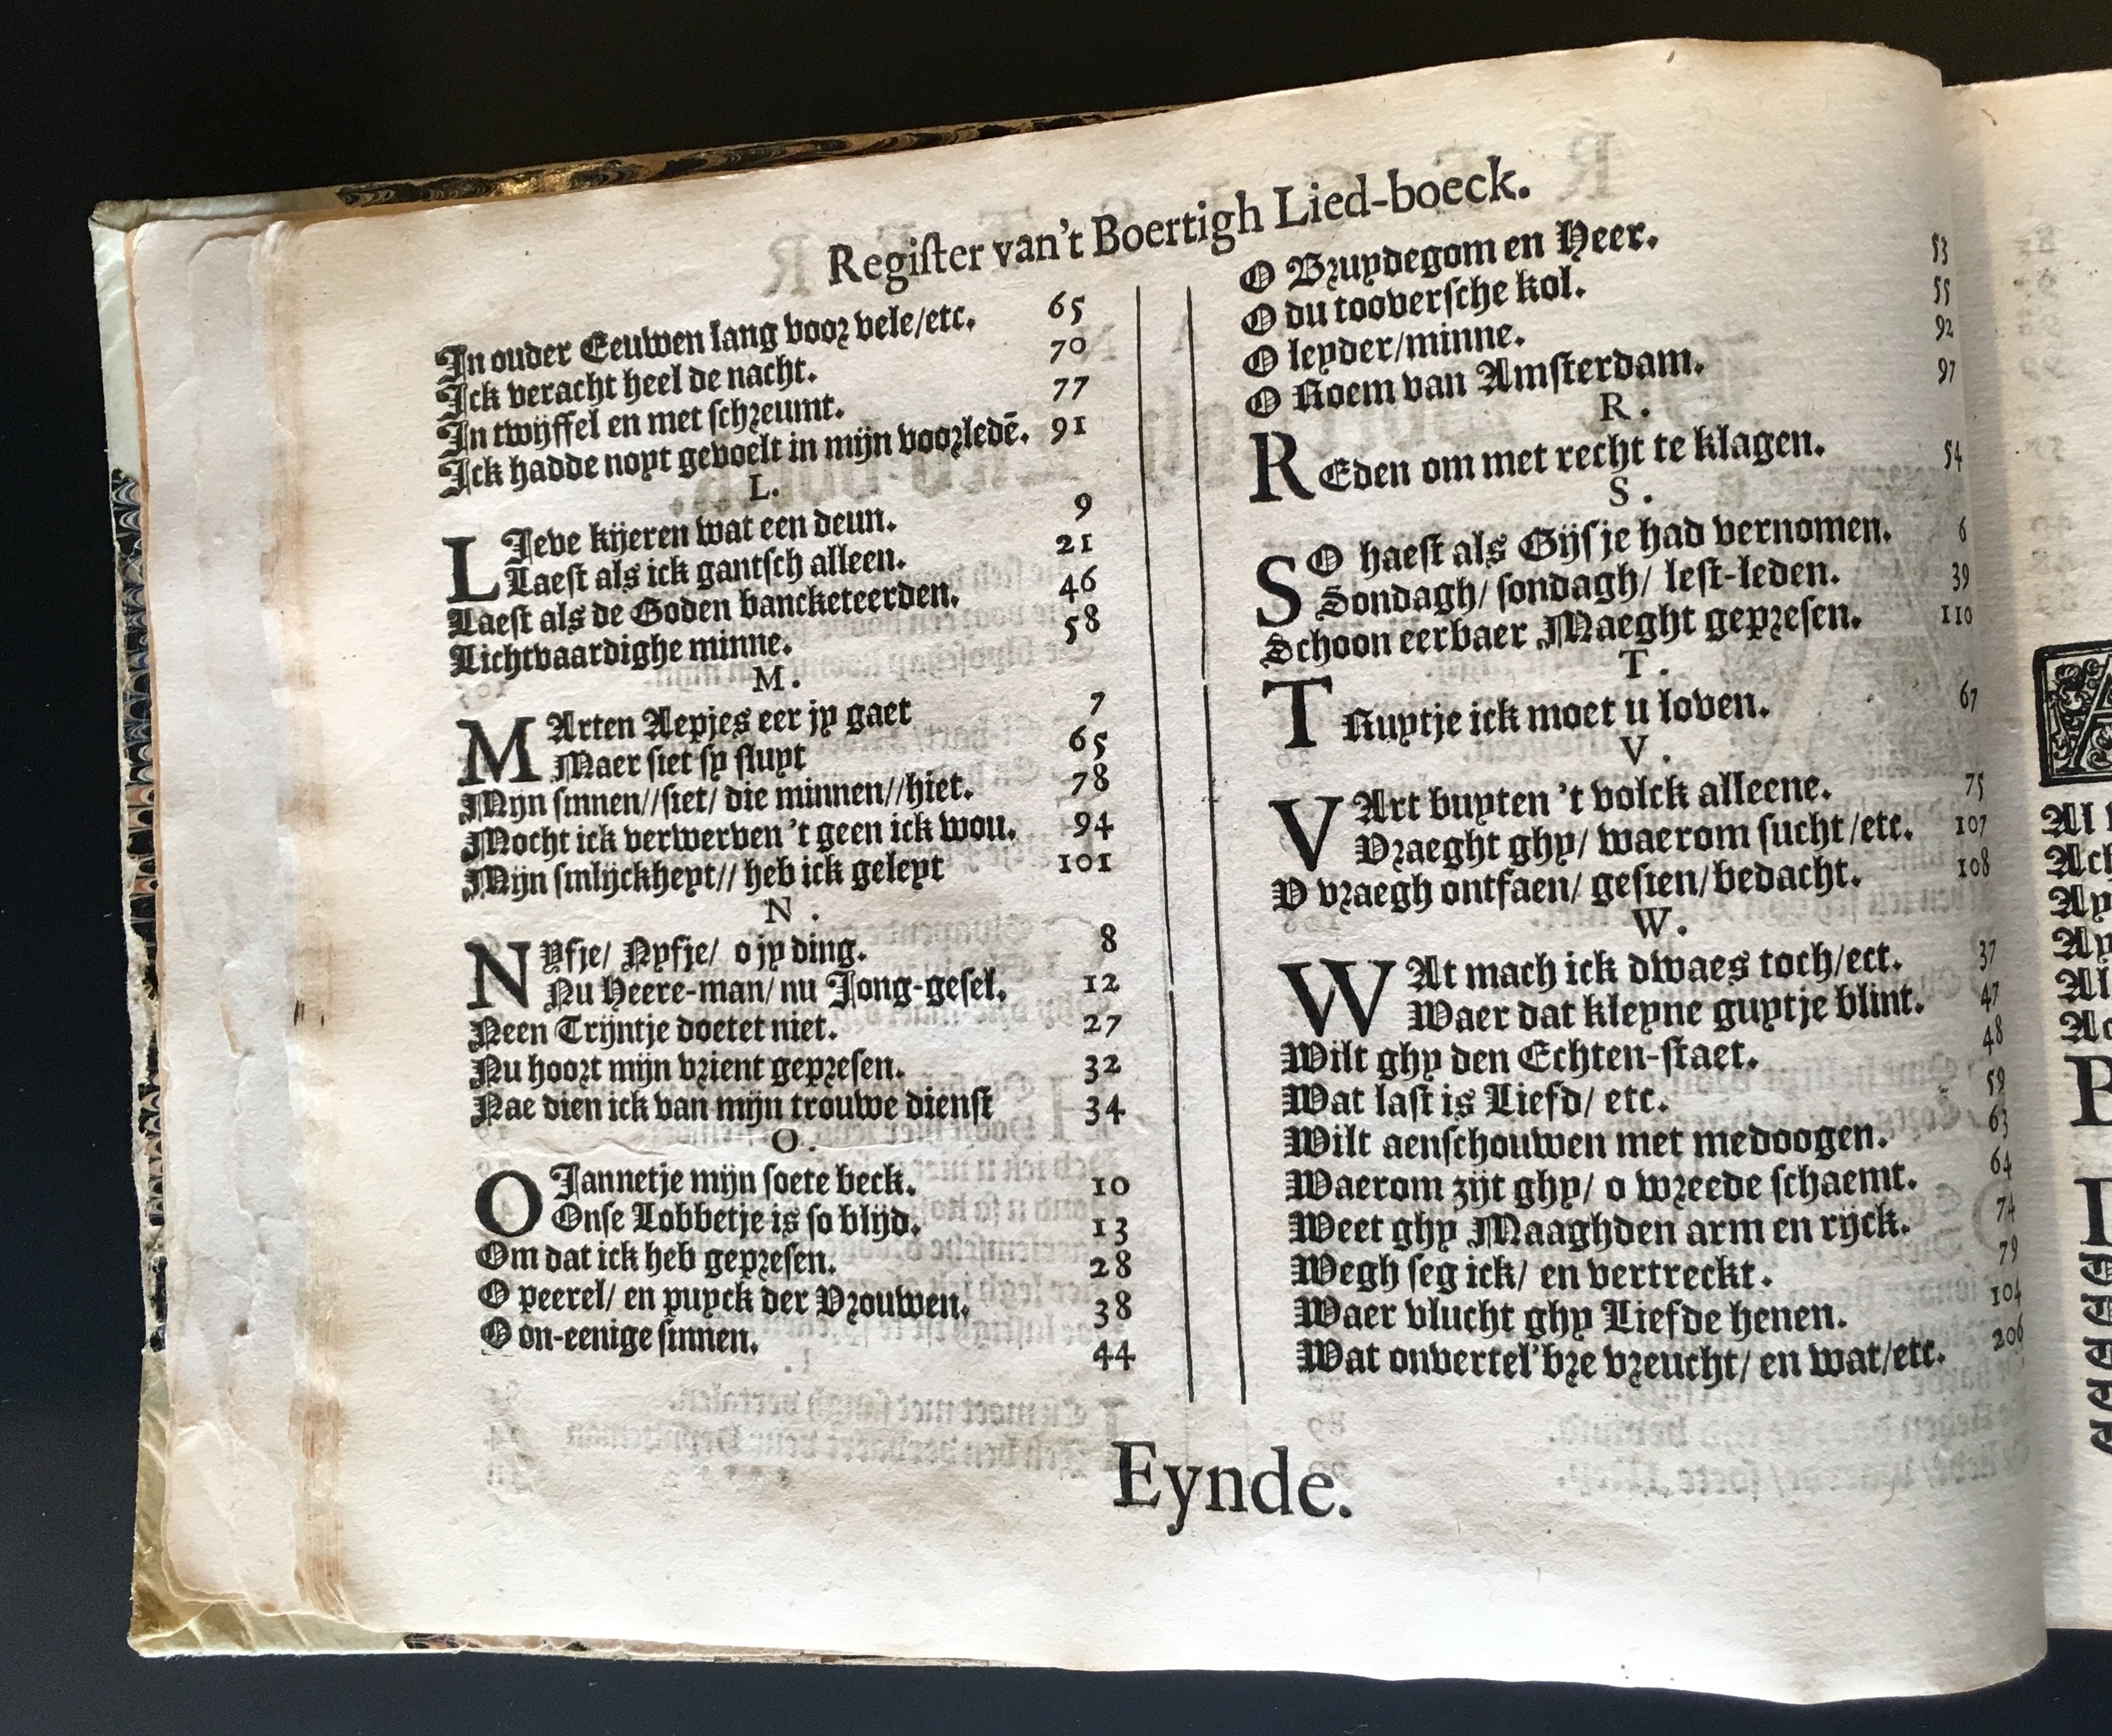 Register van't Boertigh Lied-boeck.
In ouder Eeuwen lang voor vele/etc. 65
Ick veracht heel de nacht. 70
In twijffel en met schreumt. 77
Ick hadde noyt gevoelt in mijn voorledē. 91
L.
LIeve kijeren wat een deun. 9
Laest als ick gantsch alleen. 21
Laest als de Goden bancketeerden. 46
Lichtvaardighe minne. 58
M.
MArten Aepjes eer jy gaet 7
Maer siet sy sluypt 65
Mijn sinnen//siet/ die minnen//hiet. 78
Mocht ick verwerven 't geen ick wou. 94
Mijn sinlijckheyt// heb ick geleyt 101
N.
NYfje/ Nyfje/ o jy ding. 8
Nu Heere-man/ nu Jong-gesel. 12
Neen Trijntje doetet niet. 27
Nu hoort mijn vrient gepresen. 32
Nae dien ick van mijn trouwe dienst 34
O.
O Jannetje mijn soete beck. 10
Onse Lobbetje is so blijd. 13
Om dat ick heb gepresen. 28
O peerel/ en puyck der Vrouwen. 38
O on-eenige sinnen. 44
O Bruydegom en Heer. 53
O du tooversche kol. 55
O leyder/minne. 92
O Roem van Amsterdam. 97
R.
REden om met recht te klagen. 54
S.
SO haest als Gijsje had vernomen. 6
Sondagh/ sondagh/ lest-leden. 39
Schoon eerbaer Maeght gepresen. 110
T.
TRuytje ick moet u loven. 67
V.
VArt buyten 't volck alleene. 75
Vraeght ghy/ waerom sucht/etc. 107
V vraegh ontfaen/ gesien/bedacht. 108
W.
WAt mach ick dwaes toch/ect. 37
Waer dat kleyne guytje blint. 47
Wilt ghy den Echten-staet. 48
Wat last is Liefd/ etc. 59
Wilt aenschouwen met medoogen. 63
Waerom zijt ghy/ o wreede schaemt. 64
Weet ghy Maaghden arm en rijck. 74
Wegh seg ick/ en vertreckt. 79
Waer vlucht ghy Liefde henen. 104
Wat onvertel'bre vreucht/ en wat/etc. 206
Eynde.